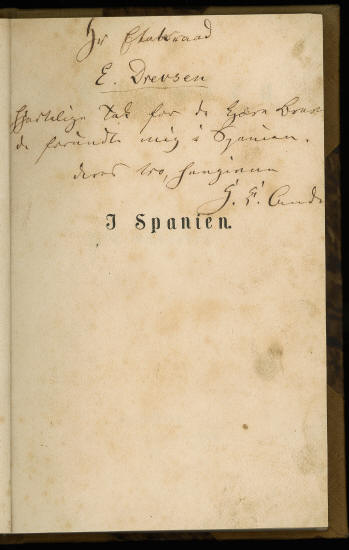 Hr Etatsraad
E. Drewsen
Hjertelige Tak for de kjære Breve
de forundte mig i Spanien.
deres tro, hengivne
H. C. Ande
I Spanien.